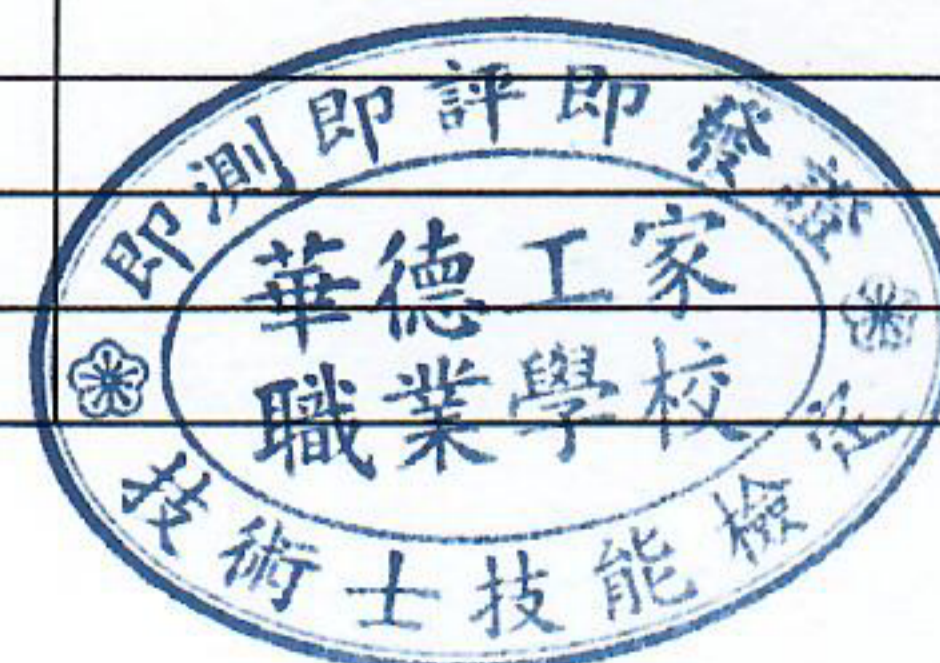 即測即評即發證
華德工家
職業學校
技術士技能檢定